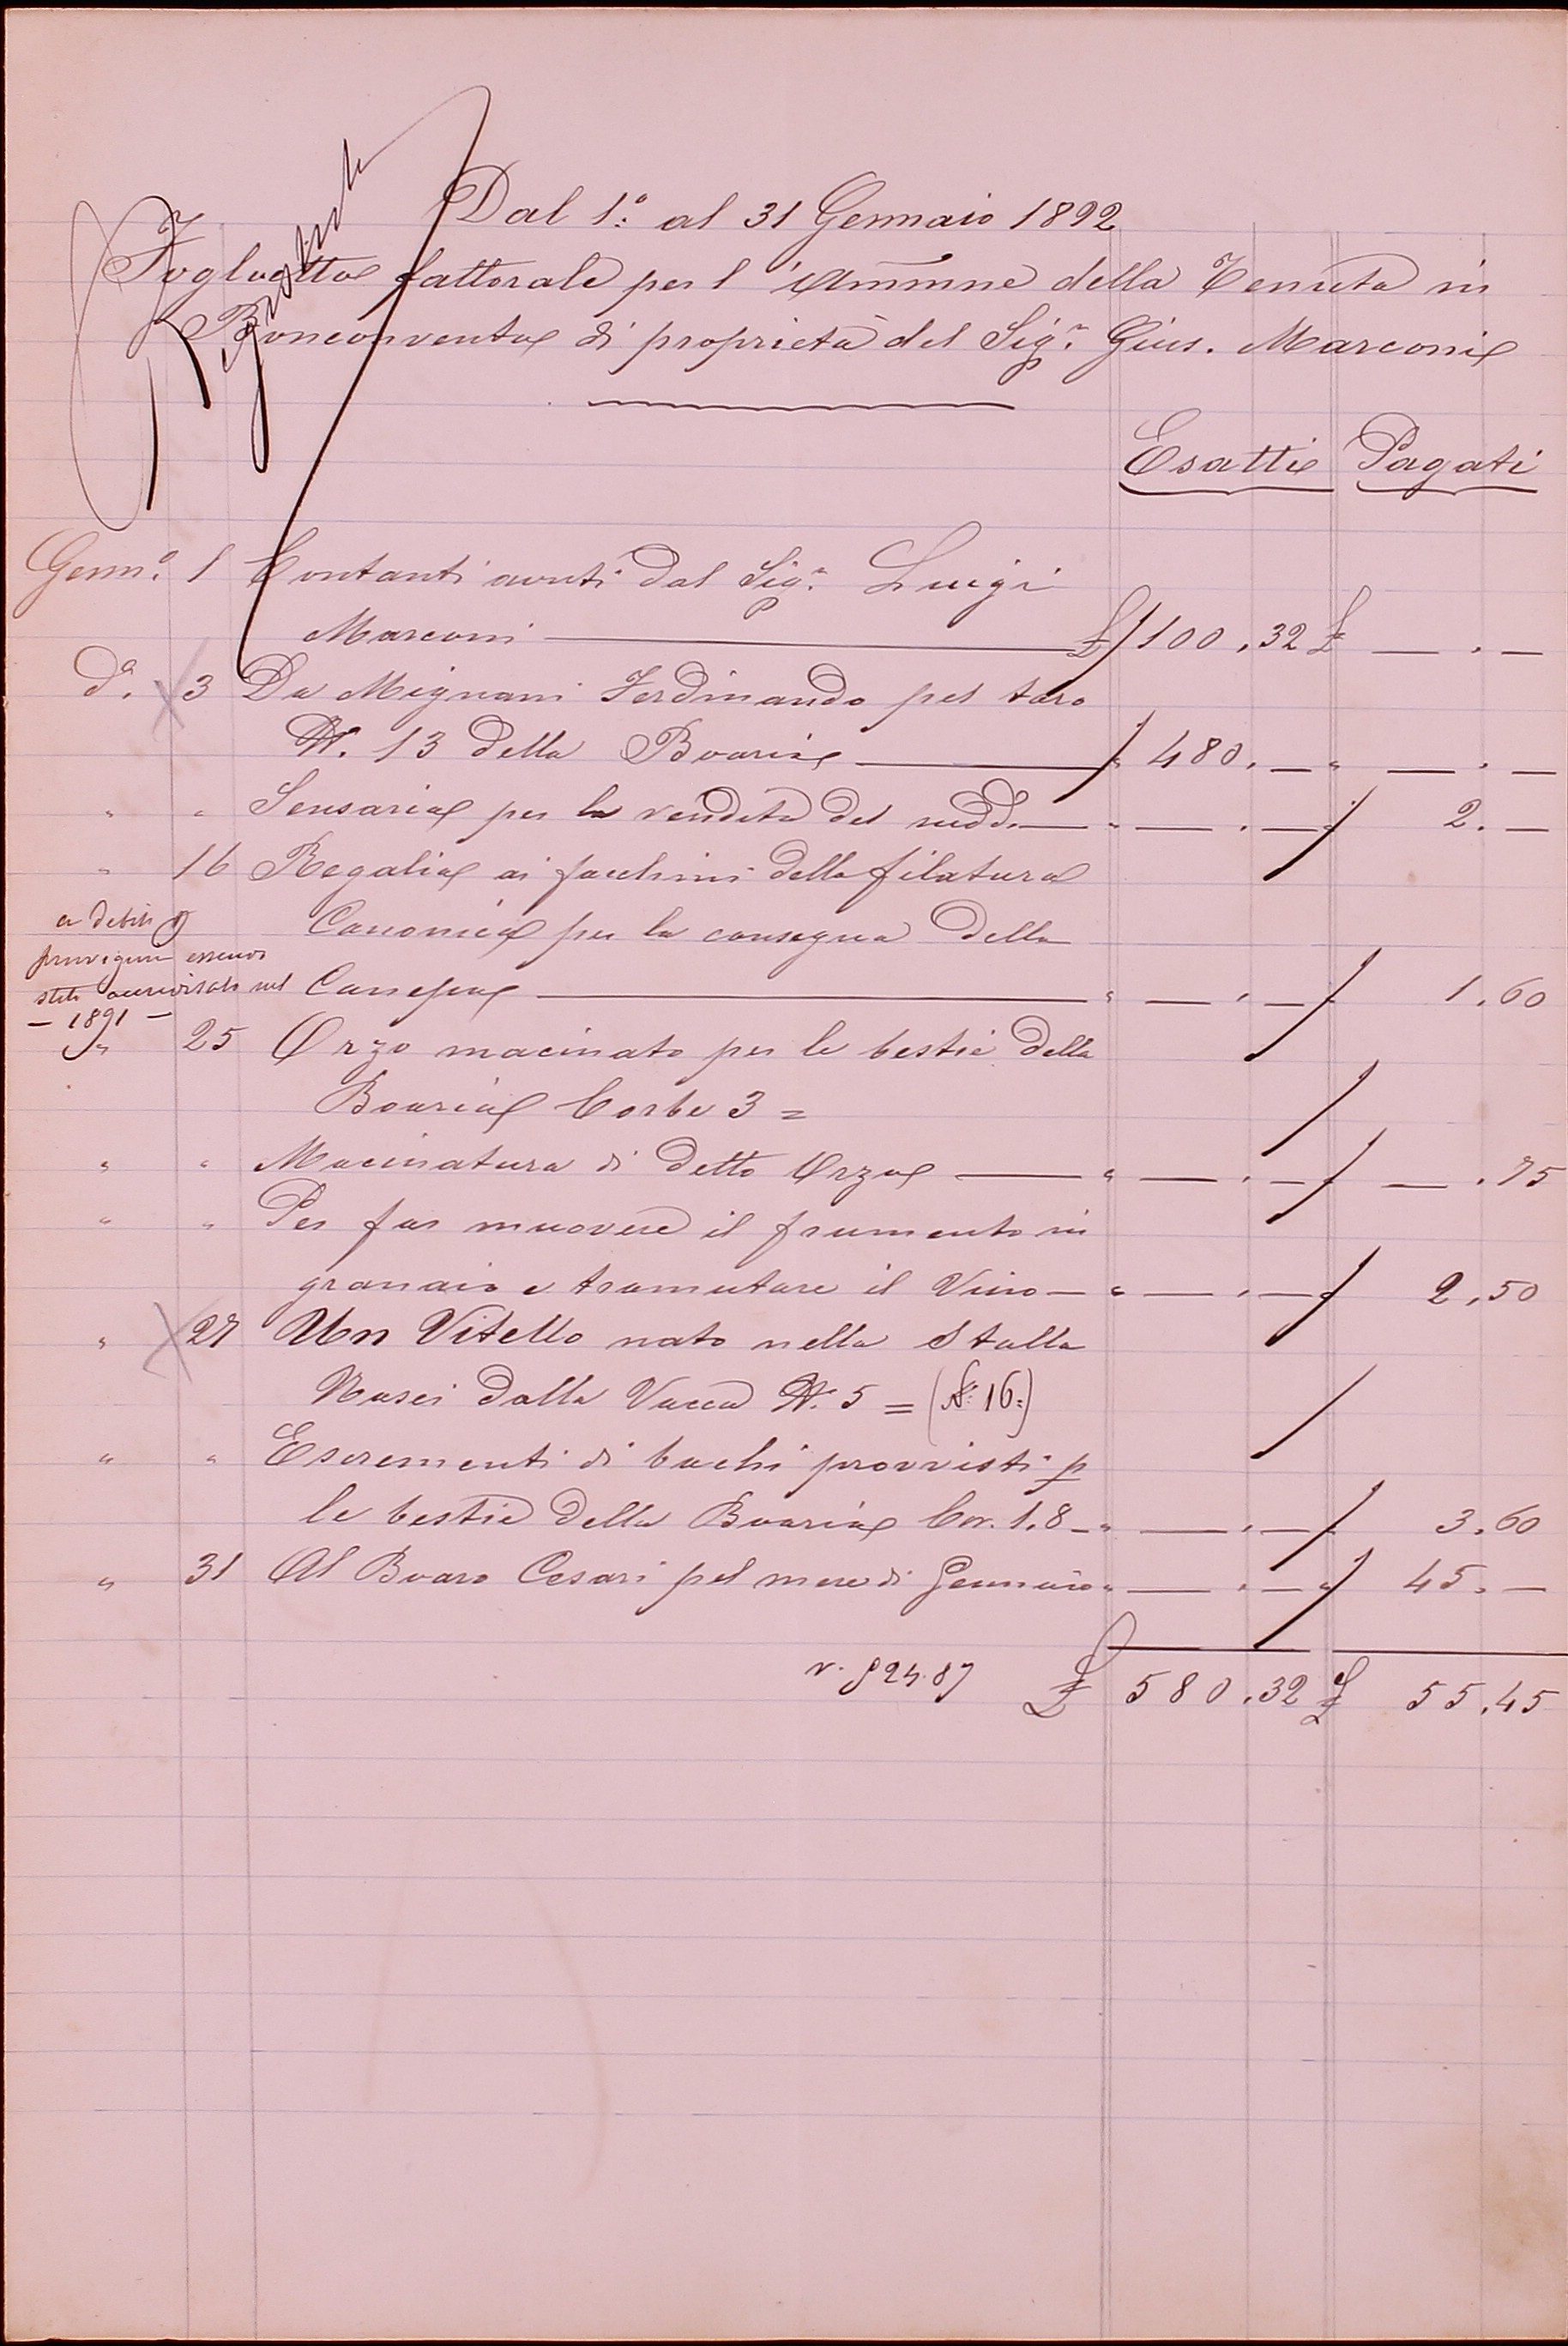 Dal 1.° al 31 Gennaio 1892
Registrato
Foglietto fattorale per l'Ammne della Tenuta in
Bonconvento di proprietà del Sig.r Gius. Marconi
Esatti Pagati
Genn.° 1 Contanti avuti dal Sig.r Luigi
Marconi £ 100.32 £ — . —
D.a 3 Da Mignani Ferdinando pel toro
N. 13 della Boaria " 480. — " — . —
" " Senseria per la vendita del sudd. " — . — " 2. —
" 16 Regalia ai facchini della filatura
Canonica per la consegna della
Canepa " — . — " 1.60
a debito
essendo
stato nel
— 1891 —
" 25 Orzo macinato per le bestie della
Boaria Corbe 3 =
" " Macinatura di detto Orzo " — . — " — .75
" " Per far muovere il frumento in
granaio e tramutare il Vino — " — . — " 2,50
" 27 Un Vitello nato nella Stalla
Nasci dalla Vacca N. 5 = (N. 16=)
" " Escrementi di bachi provvisti p
le bestie della Boaria Cor. 1.8 — " — . — " 3.60
" 31 Al Boaro Cesari pel mese di Gennaio " — . — " 45. —
r. 524.87 £ 580.32 £ 55.45